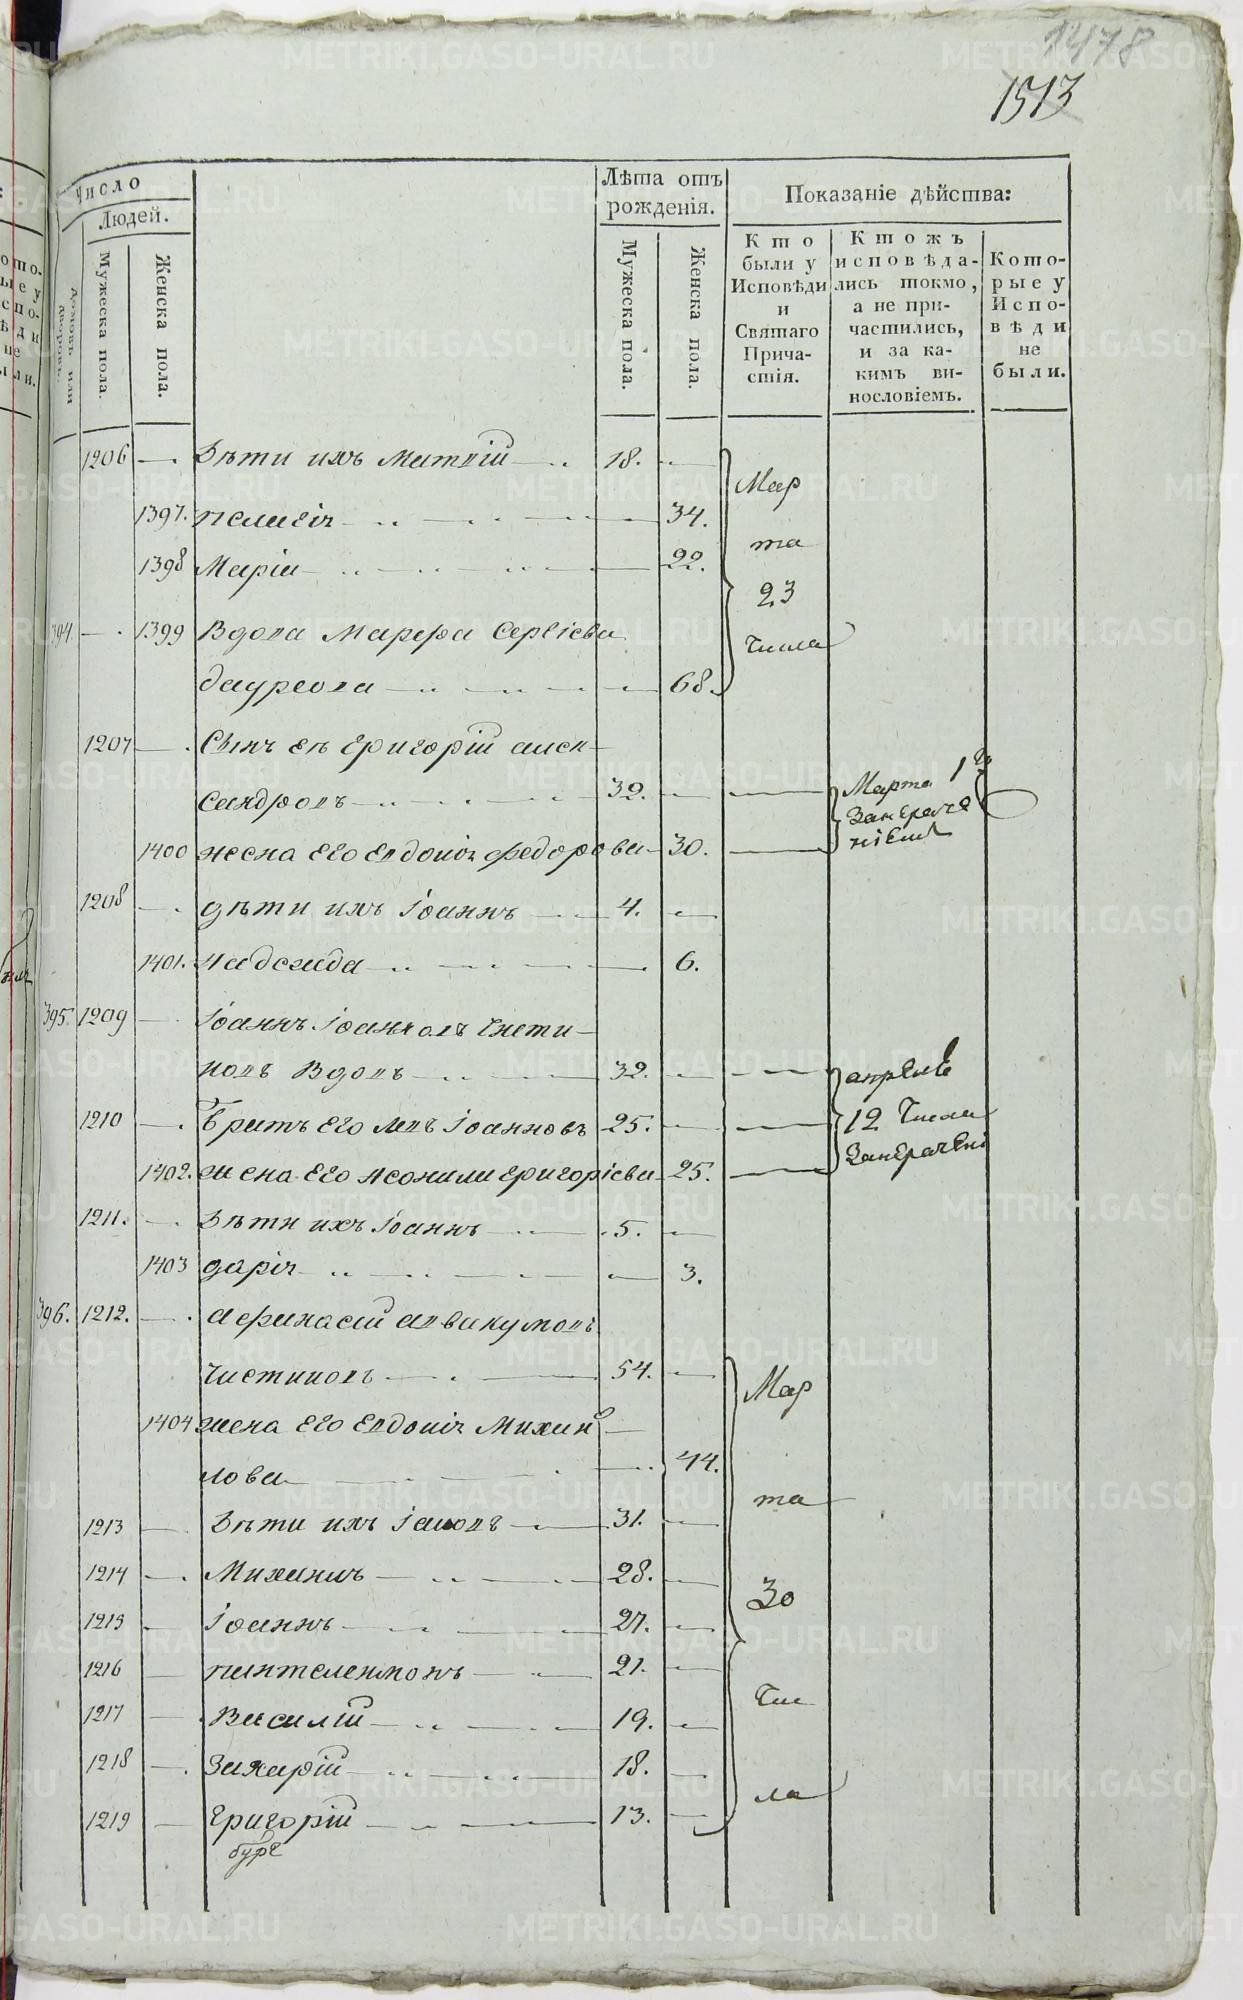 1478
1513
Число
Людей.
Лѣта отъ рожденія.
Показаніе дѣйства:
Домовъ или дворовъ.
Мужеска пола.
Женска пола.
Мужеска пола.
Женска пола.
Кто были у Исповѣди и Святаго Причастія.
Ктожъ исповѣдались токмо, а не причастились, и за какимъ винословіемъ.
Которые у Исповѣди не были.
1206 Дѣти ихъ 18.
1397. Пелагія 34.
1398 Марія 22.
Мар
та
23
числа
394. 1399 Вдова Марфа Сергіева
68.
1207 Сынъ ея Григорій Алек-
сандровъ 32.
1400 жена его Евдокія Федорова 30.
Марта 1
1208 дѣти ихъ Іоаннъ 4.
1401. Надежда 6.
395. 1209 Іоаннъ Іоанновъ Чисти-
ковъ Вдовъ 32.
1210 Братъ его Левъ Іоанновъ 25.
1402. жена его Григоріева 25.
апреля
12 Числа
1211. Дѣти ихъ Іоаннъ 5.
1403 Дарія 3.
396. 1212. Афанасій Аввакумовъ
Чистиковъ 54.
1404 жена его Евдокія Михаи-
лова 44.
1213 Дѣти ихъ Іаковъ 31.
1214 Михаилъ 28.
1215 Іоаннъ 27.
1216 Пантелеимонъ 21.
1217 Василій 19.
1218 Захарій 18.
1219 Григорій 13.
Мар
та
30
Чис
ла
METRIKI.GASO-URAL.RU